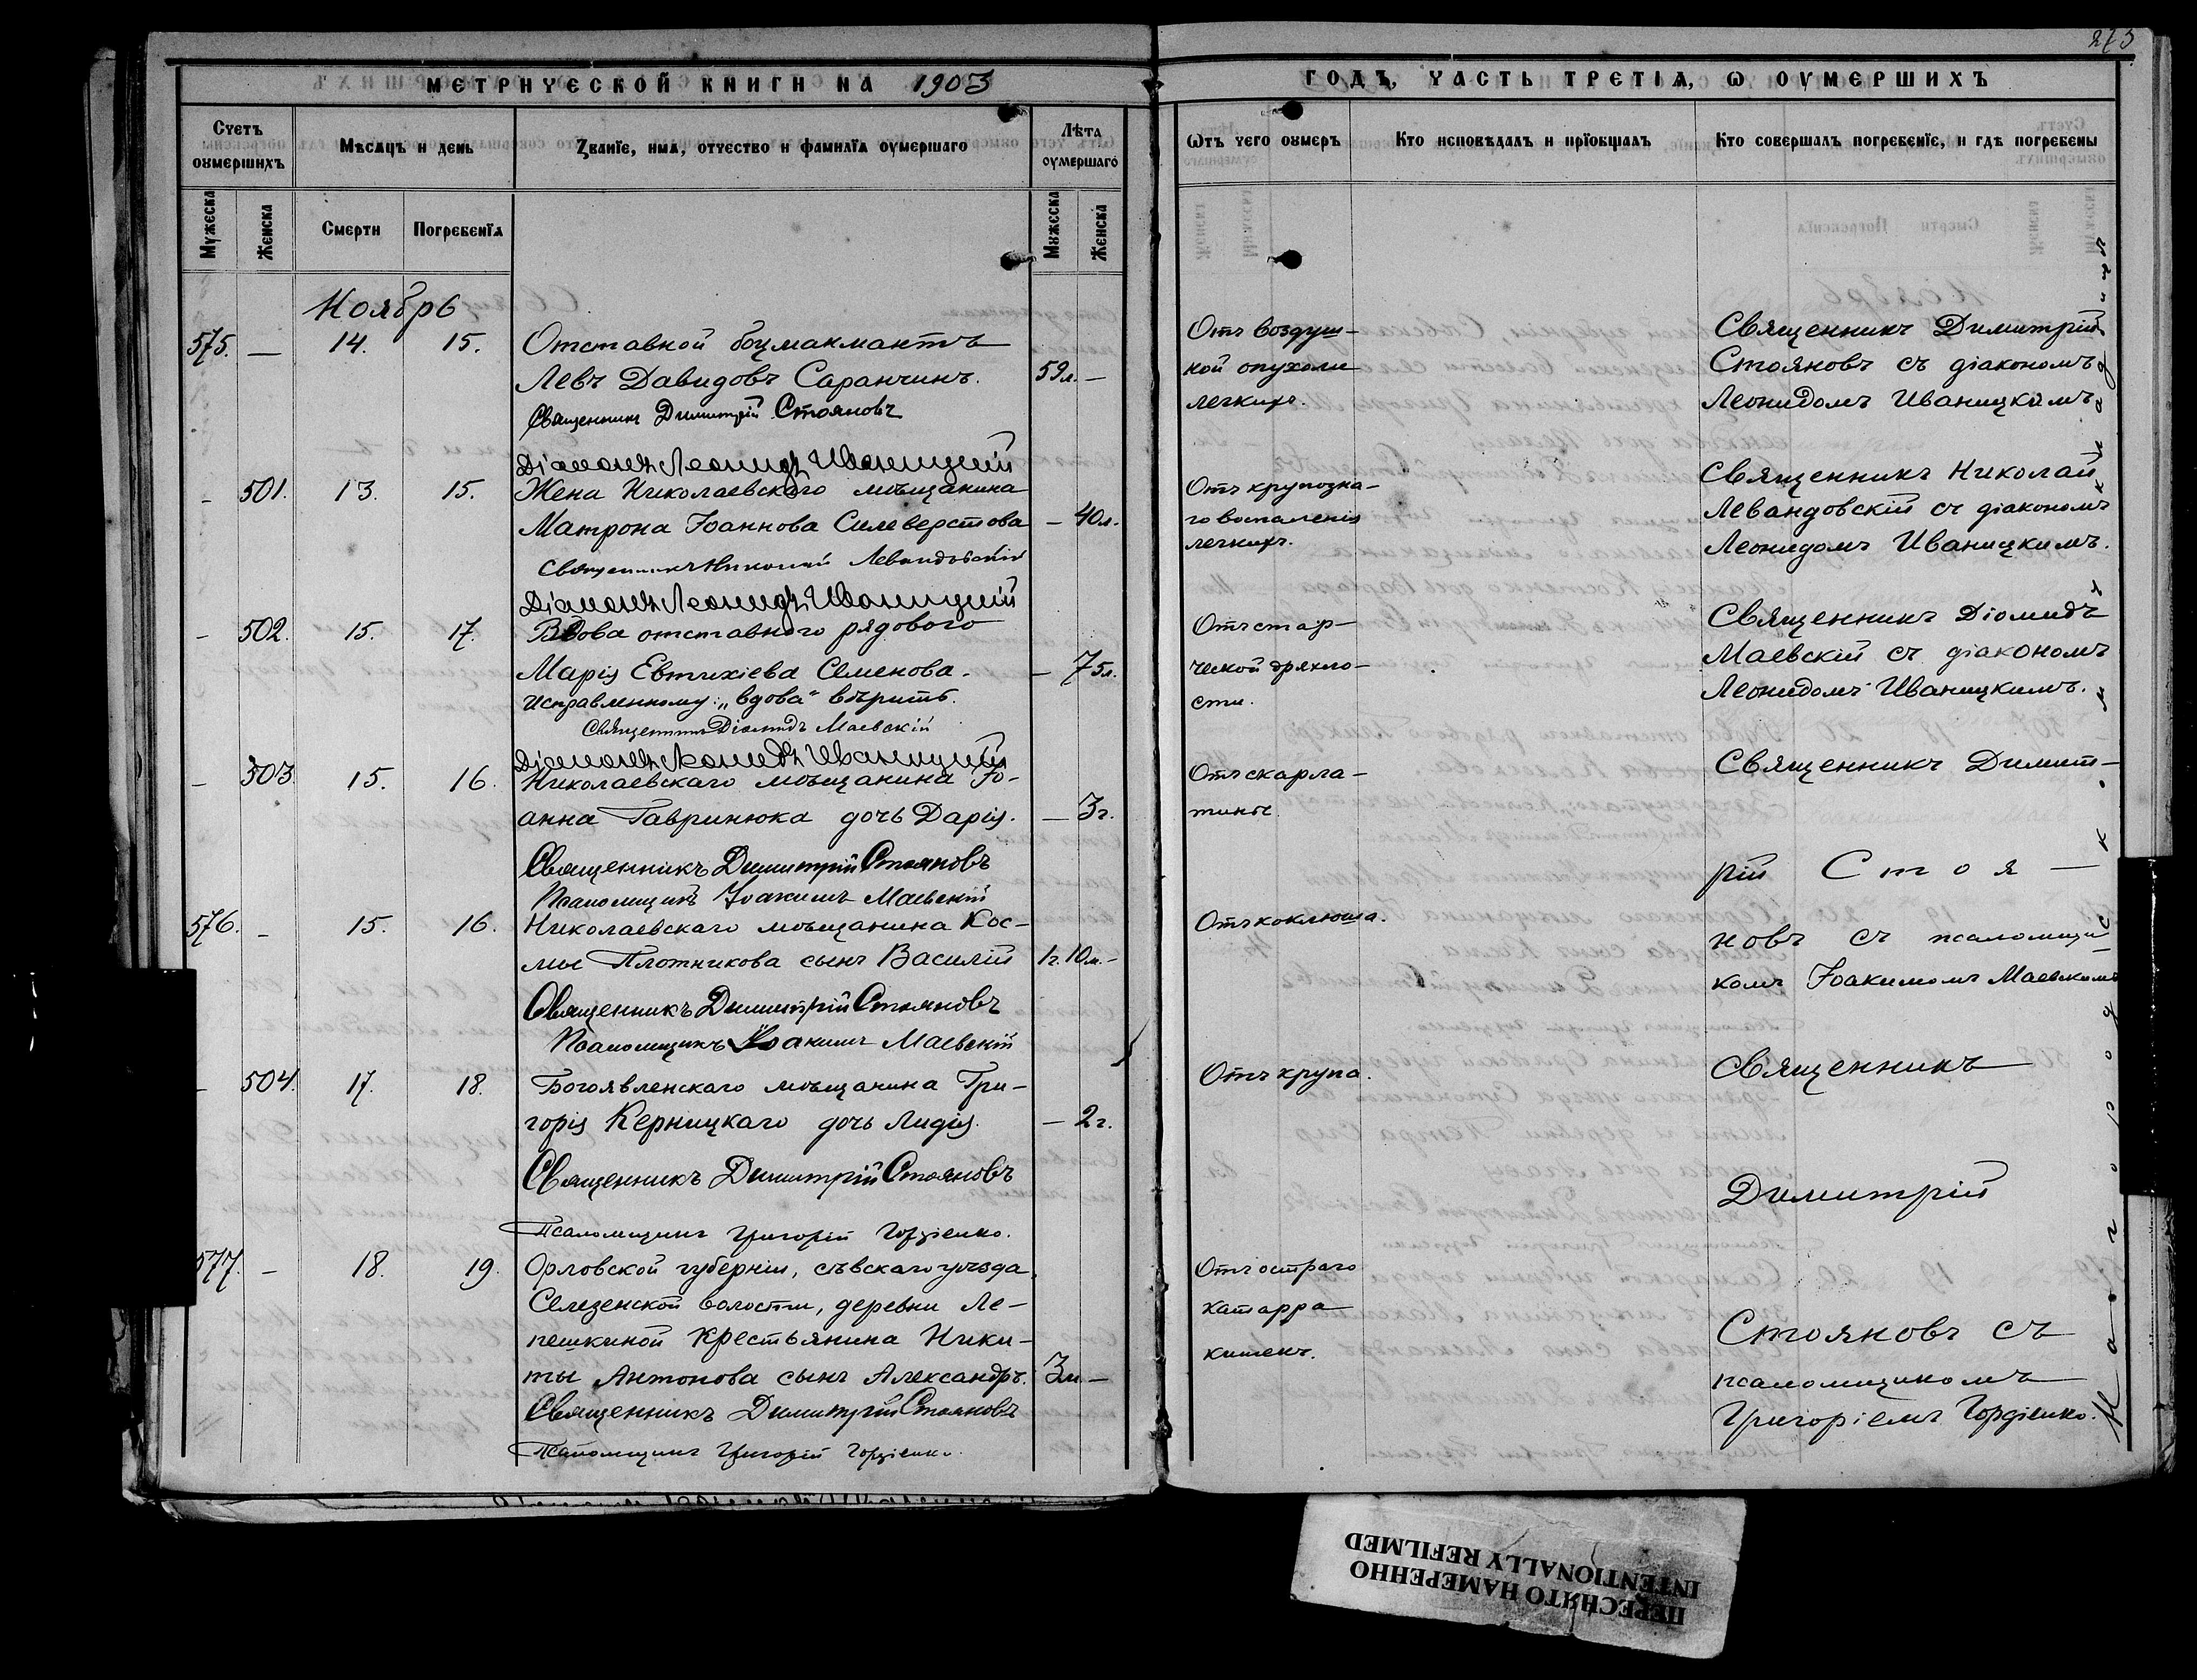 275
МЕТРИЧЕСКОЙ КНИГИ НА 1903 ГОДЪ, ЧАСТЬ ТРЕТІЯ, Ѡ ОУМЕРШИХЪ
Счетъ оумершихъ
Мѣсяцъ и день
Званїе, имя, отчество и фамилїя оумершаго
Лѣта оумершаго
Ѿтъ чего оумеръ
Кто исповѣдалъ и прїобщалъ
Кто совершалъ погребенїе, и гдѣ погребены
Мужеска
Женска
Смерти
Погребенїя
Мужеска
Женска
Ноябрь
575. — 14. 15. Отставной боцманматъ
Левъ Давидовъ Саранчинъ. 59л. —
Священникъ Димитрій Стояновъ
Діаконъ Леонидъ Иваницкій
Отъ воздуш-
ной опухоли
легкихъ.
Священникъ Димитрій
Стояновъ съ діакономъ
Леонидомъ Иваницкимъ
- 501. 13. 15. Жена Николаевскаго мѣщанина
Матрона Іоаннова Силеверстова — 40л.
Священникъ Николай Левандовскій
Діаконъ Леонидъ Иваницкій
Отъ крупозна-
го воспаленія
легкихъ.
Священникъ Николай
Левандовскій съ діакономъ
Леонидомъ Иваницкимъ.
- 502. 15. 17. Вдова отставного рядового
Марія Евтихіева Семенова. — 75л.
Исправленному: „вдова“ вѣрить.
Священникъ Діомидъ Маевскій
Діаконъ Леонидъ Иваницкій
Отъ стар-
ческой дряхло-
сти.
Священникъ Діомидъ
Маевскій съ діакономъ
Леонидомъ Иваницкимъ.
- 503 15. 16. Николаевскаго мѣщанина Іо-
анна Гавринюка дочь Дарія. — 3г.
Священникъ Димитрій Стояновъ
Псаломщикъ Іоакимъ Маевскій
Отъ скарла-
тины.
Священникъ Димит-
рій Стоя-
576. - 15. 16. Николаевскаго мѣщанина Кос-
мы Плотникова сынъ Василій 1г. 10м. -
Священникъ Димитрій Стояновъ
Псаломщикъ Іоакимъ Маевскій
Отъ коклюша.
новъ съ псаломщи
комъ Іоакимомъ Маевскимъ
- 504. 17. 18. Богоявленскаго мѣщанина Гри-
горія Керницкаго дочь Лидія. — 2г.
Священникъ Димитрій Стояновъ
Псаломщикъ Григорій Гордіенко.
Отъ крупа.
Священникъ
Димитрій
577. - 18. 19. Орловской губерніи, сѣвскаго уѣзда,
Селезенской волости, деревни Ле-
пешкиной крестьянина Ники-
ты Антонова сынъ Александръ. 3м. —
Священникъ Димитрій Стояновъ
Псаломщикъ Григорій Гордіенко.
Отъ остраго
катарра
кишекъ.
Стояновъ съ
псаломщикомъ
Григоріемъ Гордіенко.
На городскомъ кладбищѣ
ПЕРЕСНЯТО НАМЕРЕННО
INTENTIONALLY REFILMED